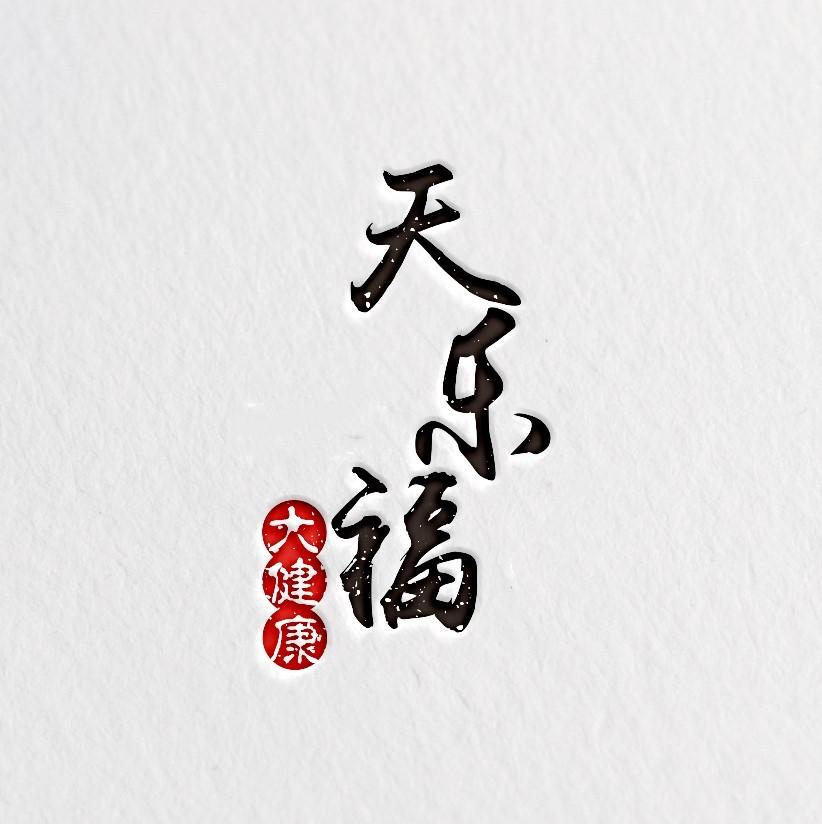 天乐福
大健康